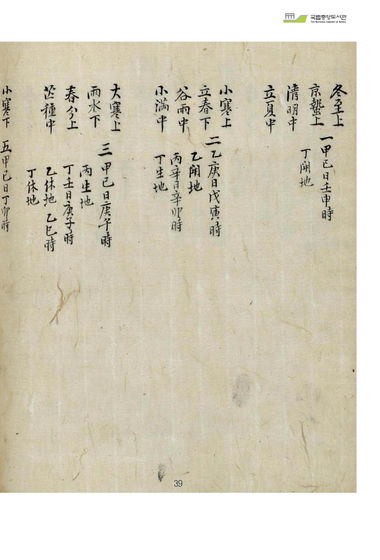 국립중앙도서관
冬至上
京蟄上 一 甲己日壬申時
清明中 丁開地
立夏中
小寒上
立春下 二 乙庚日戊寅時
谷雨中 乙開地
小滿中 丙辛日辛卯時
丁生地
大寒上
雨水下 三 甲己日庚午時
春分上 丙生地
芒種中 丁壬日庚子時
乙休地 乙巳時
丁休地
小寒下 五 甲己日丁卯時
39